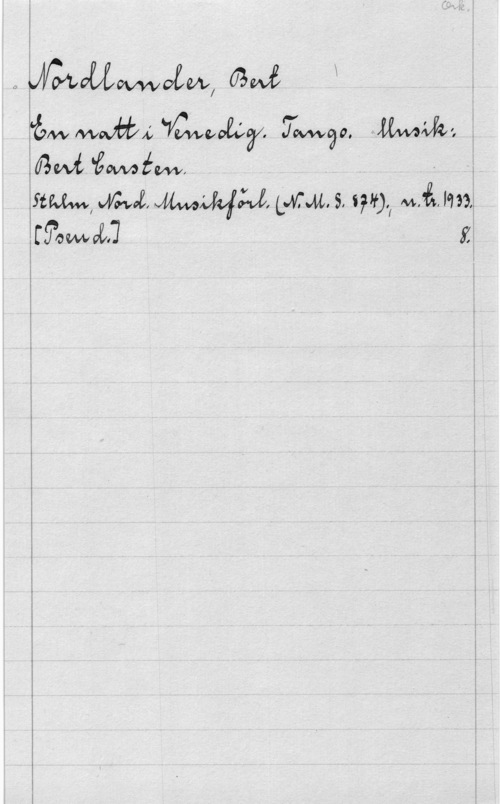 Ork.
Nordlander, Bert
En natt i Venedig. Tango. Musik:
Bert Carsten.
Sthlm, Nord. Musikförl. (N.M.S. 874); n.tr. 1933.
[Pseud.] 8.